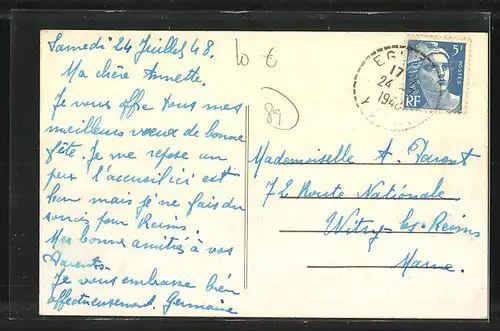 Samedi 24 Juillet 48.
Ma chère Annette.
Je vous offre tous mes
meilleurs vœux de bonne
fête. Je me repose un
peu l'accueil ici est
bon mais je me fais du
soucis pour Reims.
Mes bonnes amitiés à vos
Parents.
Je vous embrasse bien
affectueusement. Germaine
10 €
89
EG
17
24
194
Y
5F
POSTES
RF
Mademoiselle A. Parent
72 Route Nationale
Witry-les-Reims
Marne.